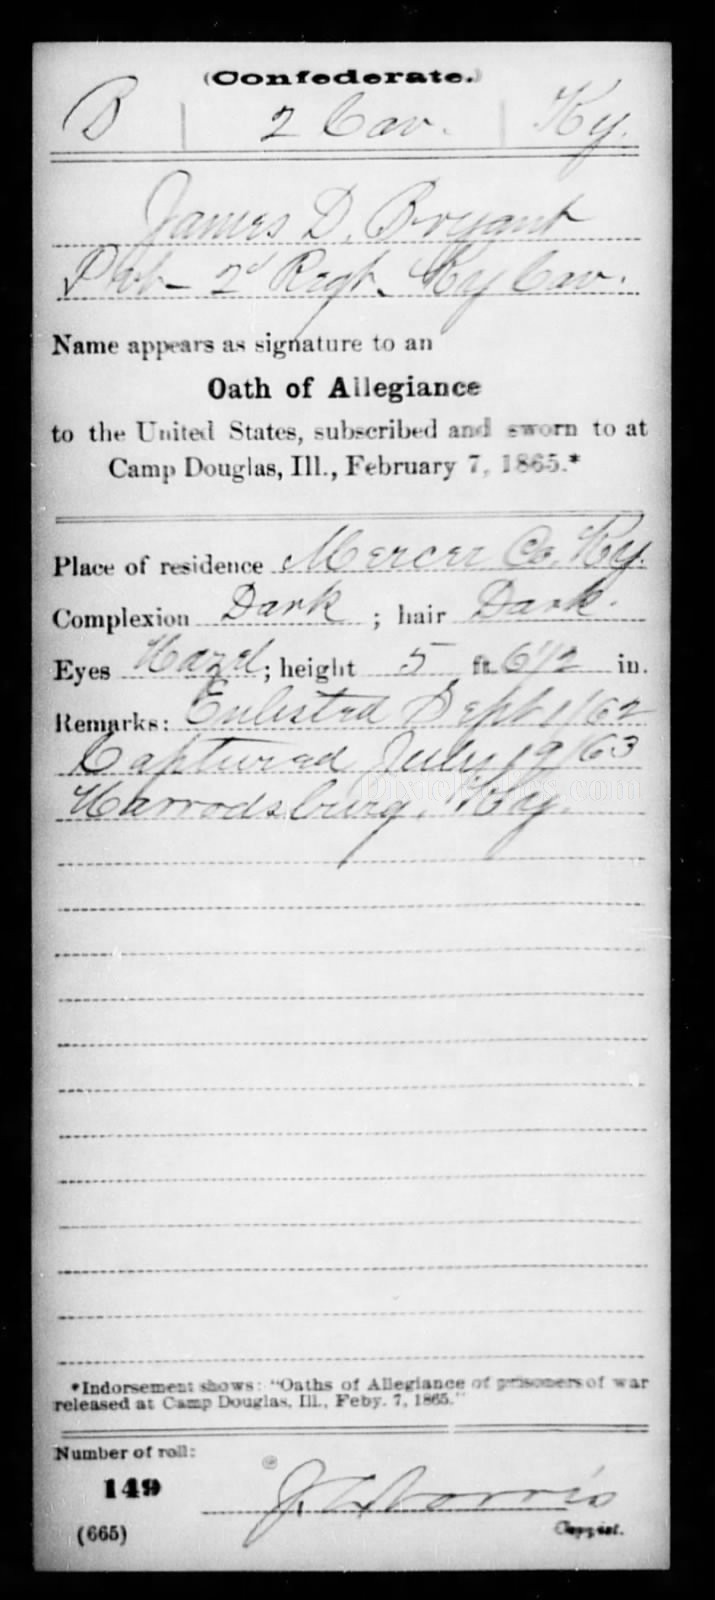 (Confederate.)
B | 2 Cav. | Ky.
James D. Bryant
Pvt- 2d Regt. Ky Cav.
Name appears as signature to an
Oath of Allegiance
to the United States, subscribed and sworn to at
Camp Douglas, Ill., February 7, 1865.*
Place of residence Mercer Co. Ky.
Complexion Dark ; hair Dark.
Eyes Hazel ; height 5 ft. 6 1/2 in.
Remarks: Enlisted Sept 1/62
Captured July 19/63
Harrodsburg, Ky.
*Indorsement shows: "Oaths of Allegiance of prisoners of war
released at Camp Douglas, Ill., Feby. 7, 1865."
Number of roll:
149
Morris
(665) Copyist.